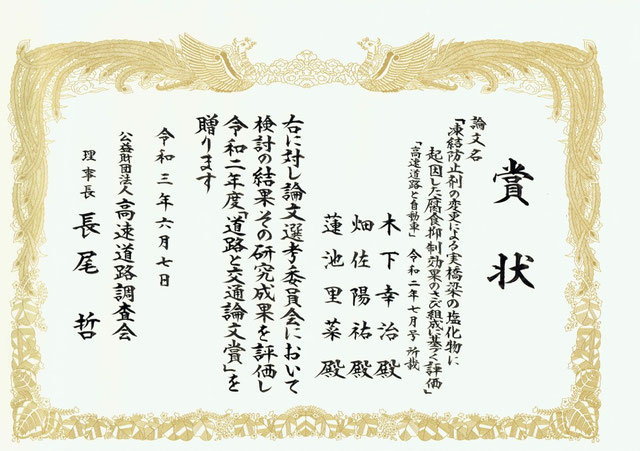 賞状
論文名
「凍結防止剤の変更による実橋梁の塩化物に
起因した腐食抑制効果のさび組成に基づく評価」
「高速道路と自動車」 令和二年七月号 所載
木下幸治殿
畑佐陽祐殿
蓮池里菜殿
右に対し論文選考委員会において
検討の結果その研究成果を評価し
令和二年度「道路と交通論文賞」を
贈ります
令和三年六月七日
公益財団法人 高速道路調査会
理事長 長尾哲